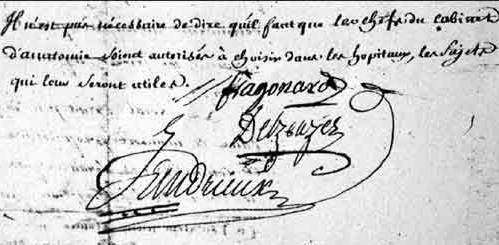 Il n'est pas nécessaire de dire qu'il faut que les chefs du cabinet
d'anatomie soient autorisés à choisir dans les hopitaux, les sujets
qui leur seront utiles.
fragonard
Delzeuzes
Landrieux